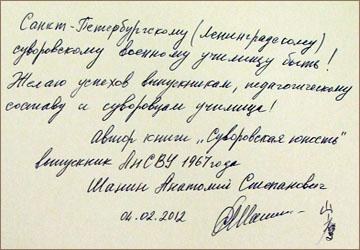 Санкт-Петербургскому (Ленинградскому)
суворовскому военному училищу быть!
Желаю успехов выпускникам, педагогическому
составу и суворовцам училища!
автор книги „Суворовская юность"
выпускник ЛнСВУ 1967 года
Шанин Анатолий Степанович
04.02.2012